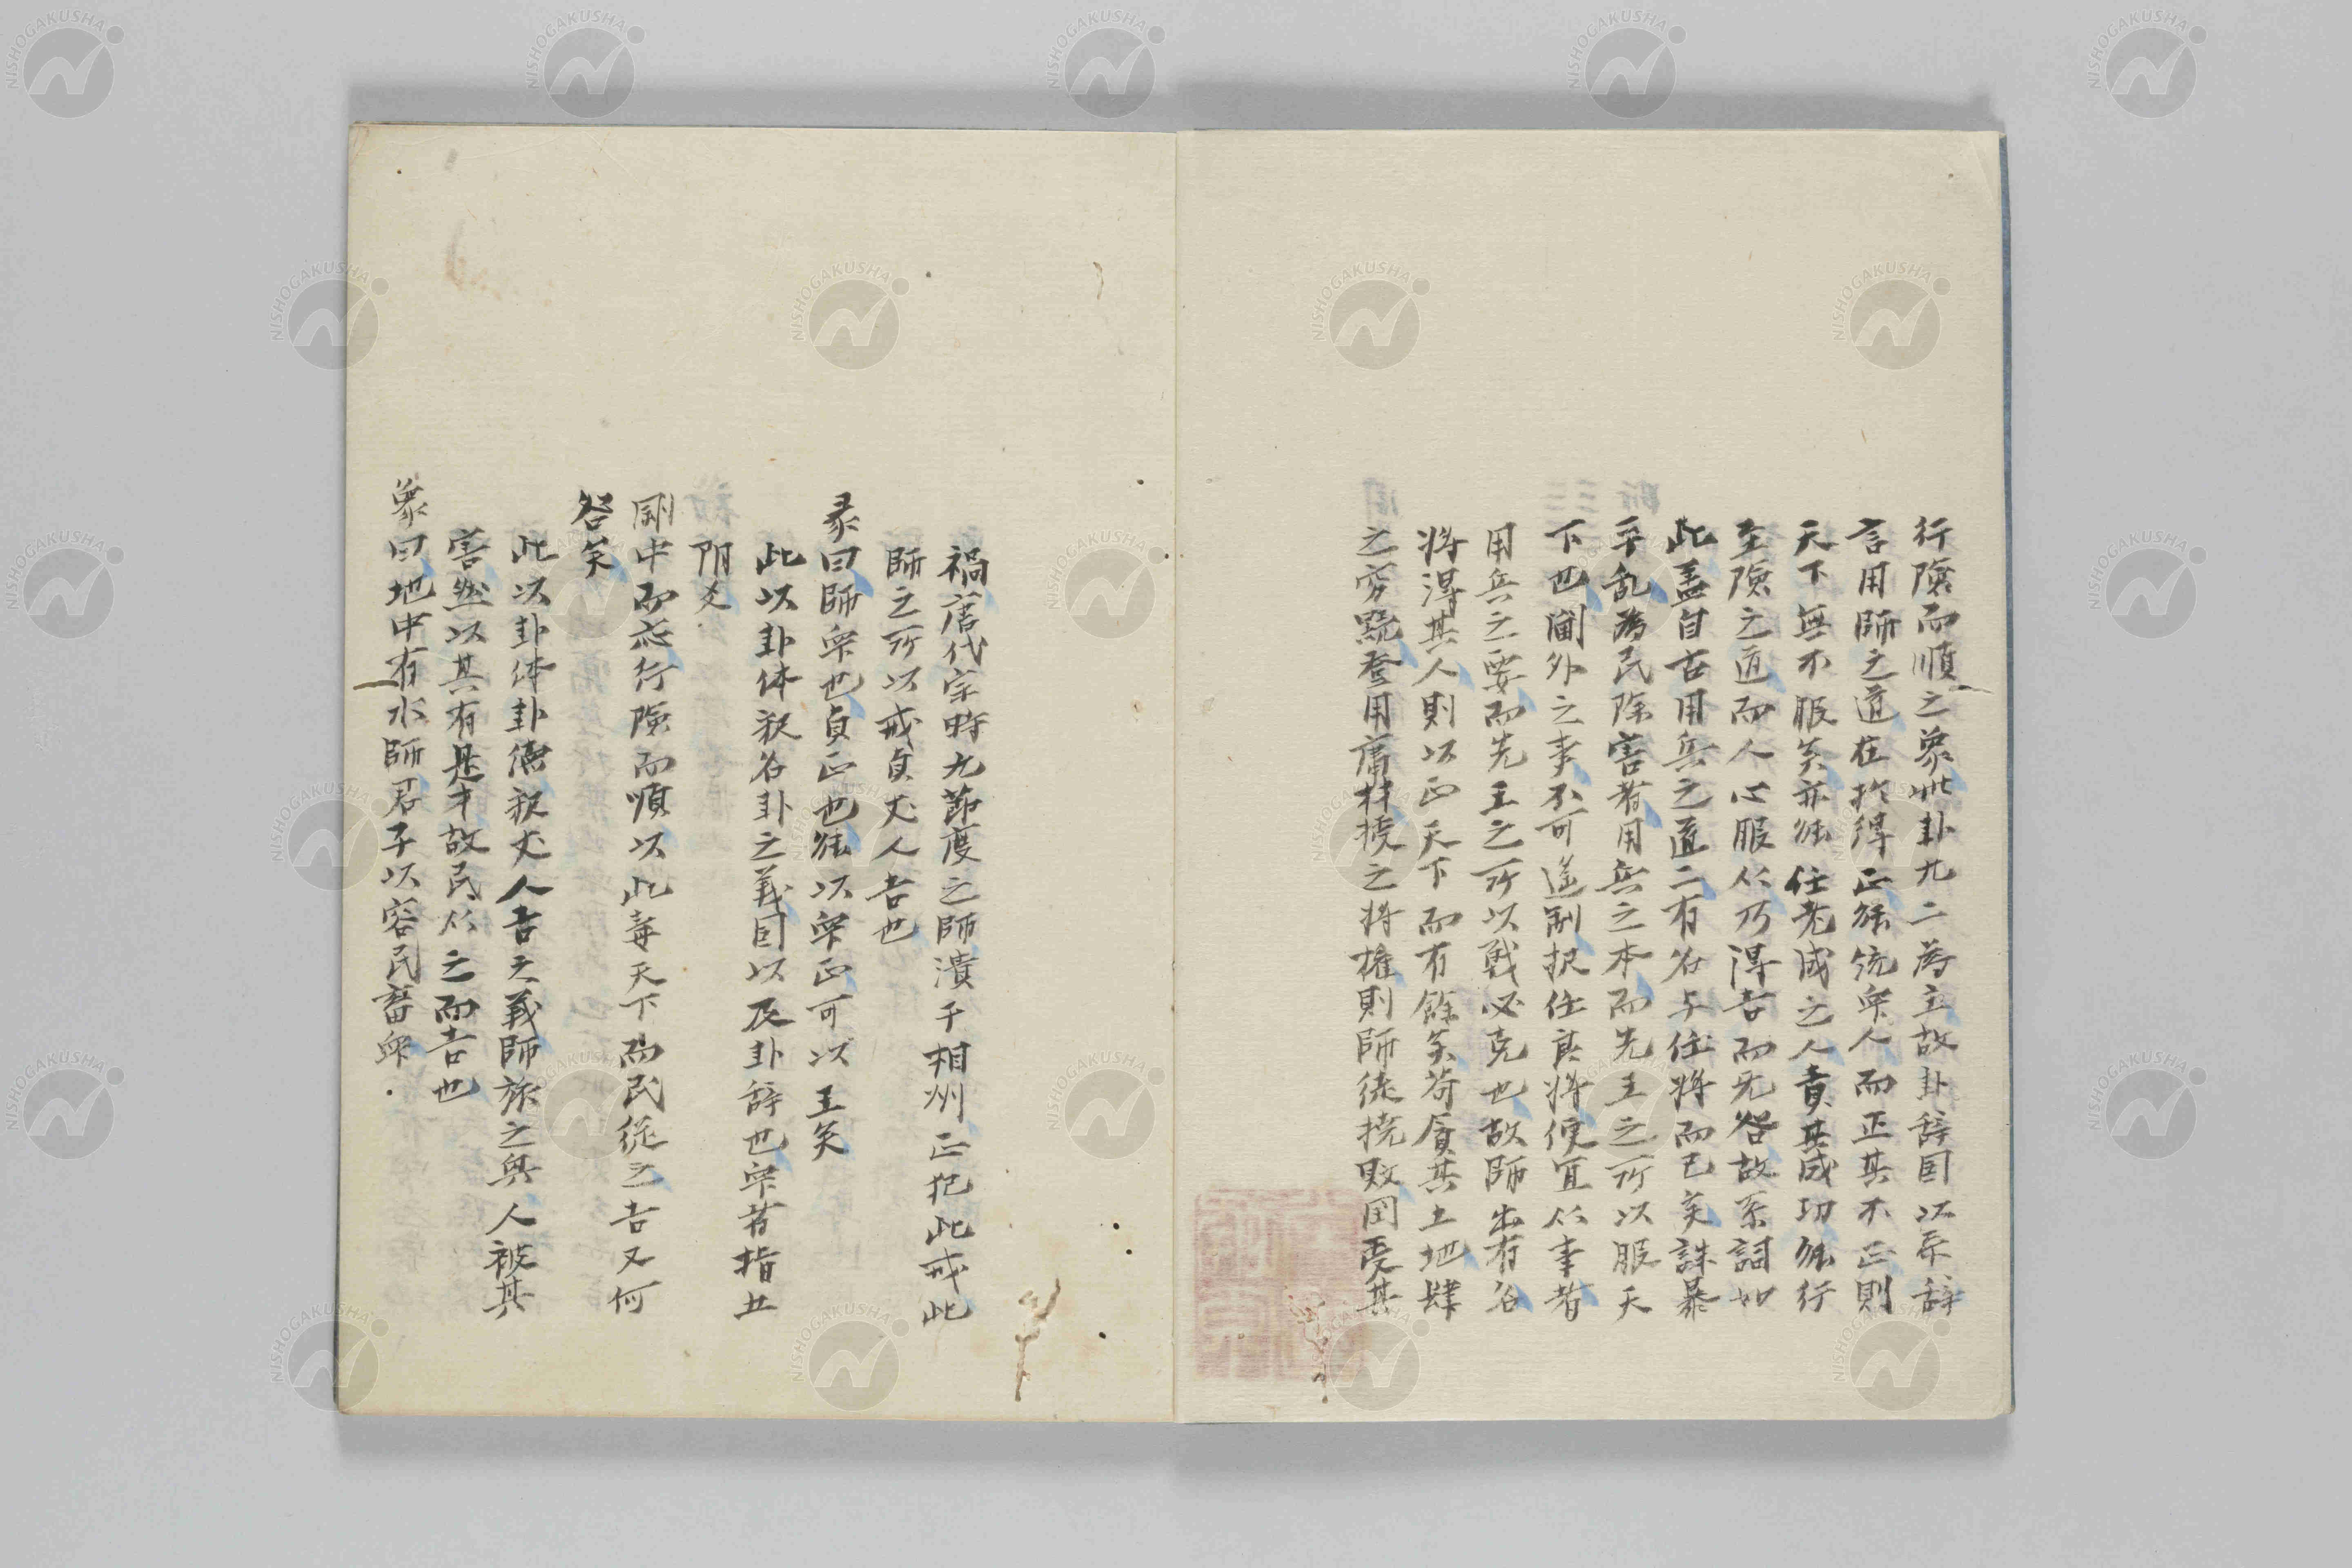 行険而順之象此卦九二為主故卦辞因以系辞
言用師之道在於得正能統衆人而正其不正則
天下無不服矣亦能任老成之人責其成功能行
至険之道而人心服从乃得吉而无咎故系詞如
此盖自古用兵之道二有名与任将而已矣誅暴
平乱為民除害者用兵之本而先王之所以服天
下也閫外之事不可遙制択任良将便宜从事者
用兵之要而先王之所以戦必克也故師出有名
将得其人則以正天下而有餘矣苟貪其土地肆
之窮黷登用庸材授之将権則師徒撓敗国受其
禍唐代宗時九節度之師潰于相州正犯此戒此
師之所以戒貞丈人吉也
彖曰師衆也貞正也能以衆正可以王矣
此以卦体釈名卦之義因以及卦辞也衆者指五
阴爻
剛中而応行険而順以此毒天下而民従之吉又何
咎矣
此以卦体卦徳釈丈人吉之義師旅之興人被其
害然以其有是才故民从之而吉也
象曰地中有水師君子以容民畜衆
NISHOGAKUSHA